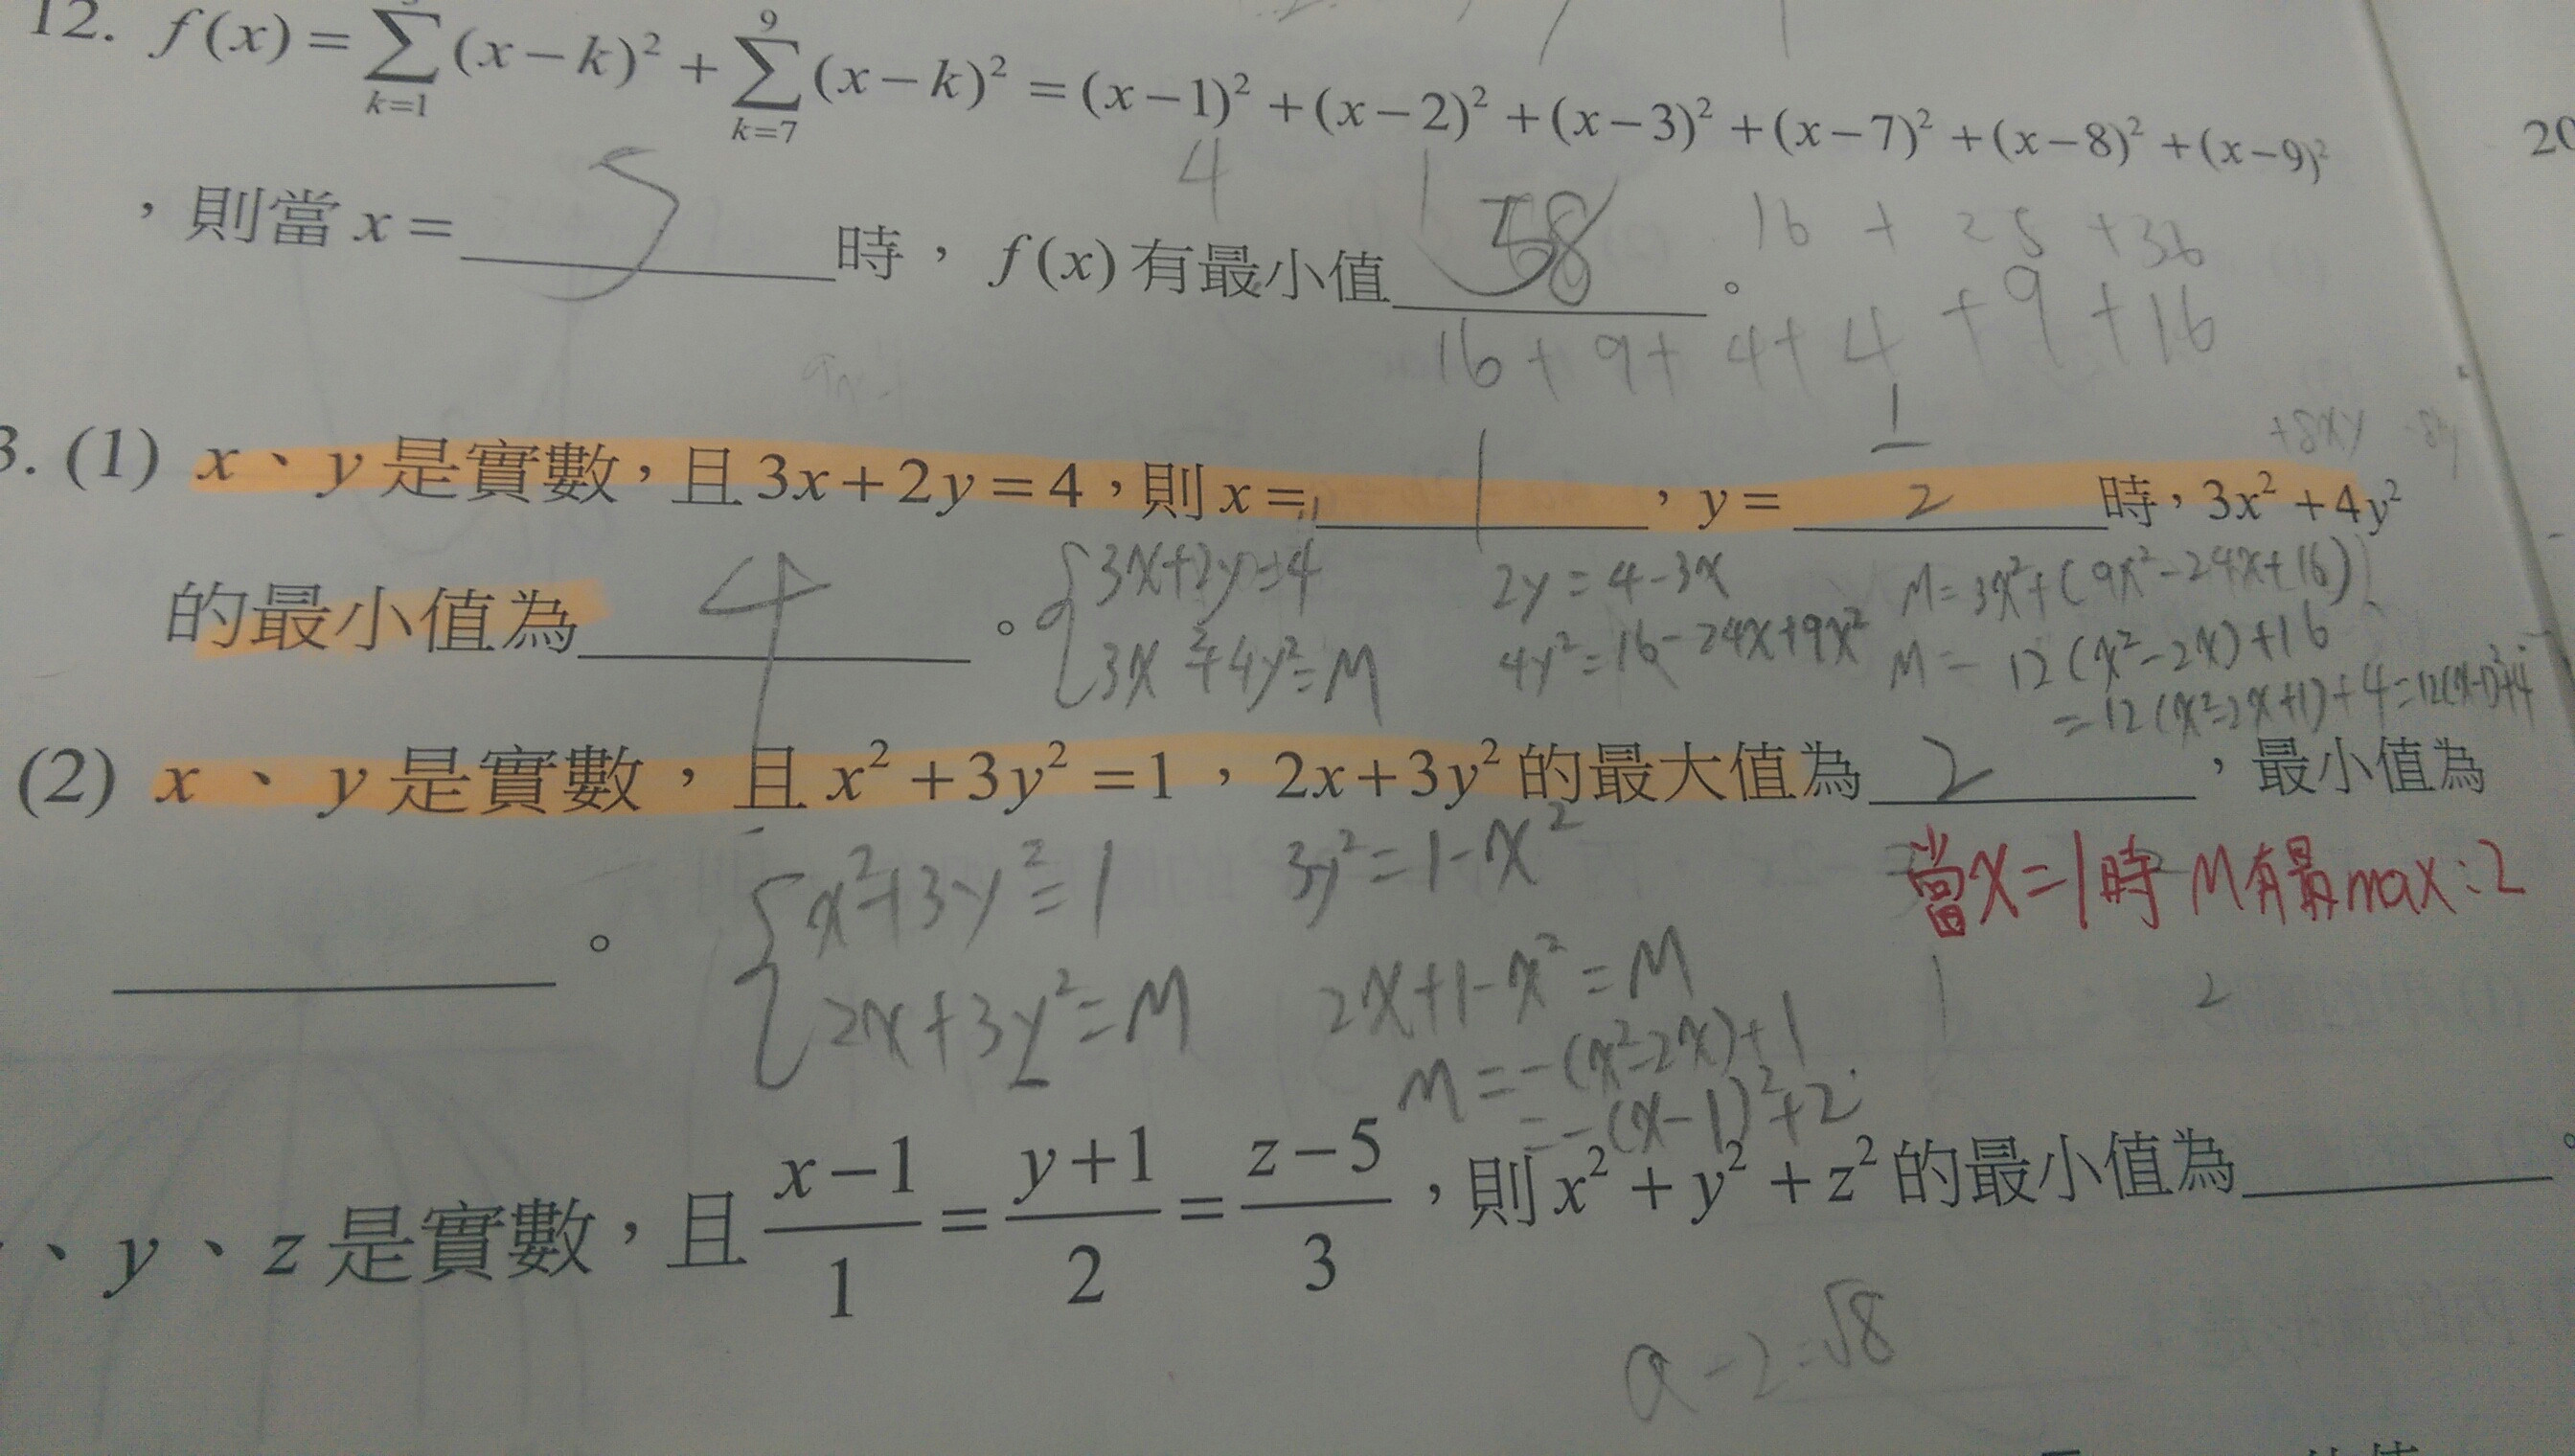 12. f(x) = ∑_{k=1} (x−k)² + ∑_{k=7}^{9} (x−k)² = (x−1)² + (x−2)² + (x−3)² + (x−7)² + (x−8)² + (x−9)²
20
4 1
，則當 x = 5 時，f(x) 有最小值 58 。
16 + 25 + 36
16 + 9 + 4 + 4 + 9 + 16
+8xy
3. (1) x、y 是實數，且 3x+2y=4，則 x = 1 ，y = 1/2 時，3x²+4y²
的最小值為 4 。
{3x+2y=4
3x²+4y²=M
2y=4-3x
4y²=16-24x+9x²
M=3x²+(9x²-24x+16)
M= 12(x²-2x)+16
=12(x²-2x+1)+4=12(x-1)²+4
(2) x、y 是實數，且 x²+3y²=1，2x+3y² 的最大值為 2 ，最小值為
。
{x²+3y²=1
2x+3y²=M
3y²=1-x²
2x+1-x²=M
M=-(x²-2x)+1
=-(x-1)²+2
當x=1時 M有最max:2
1 2
、y、z 是實數，且 (x−1)/1 = (y+1)/2 = (z−5)/3，則 x²+y²+z² 的最小值為 。
a-2=√8